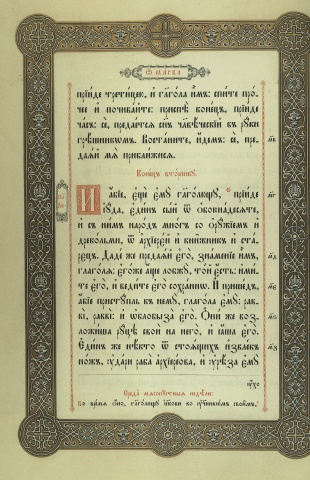 Ѿ МАРКА
прїиде третицею, и гл҃гола и҆̀мъ: спите про-
чее и почивайте: приспѣ конецъ, прїиде
часъ: се, предается сн҃ъ чл҃вѣческїй въ руки
грѣшникѡмъ. Востаните, идемъ: се, пре-
даяй мя приближися.
мв
Конецъ вторнику.
И абїе, еще ему гл҃голющу, прїиде
мг
їуда, единъ сый ѿ обоюнадесяте,
и съ нимъ народъ многъ со ѻружїемъ и
дреколми, ѿ архїерей и книжникъ и ста-
рецъ. Даде же предаяй его, знаменїе имъ,
мд
глаголя: егоже аще лобжу, той есть: ими-
те его, и ведите его сохраннѡ. И пришедъ,
мє
абїе приступль къ нему, глагола ему: рав-
ви, равви: и ѡблобыза его. Они же воз-
мѕ
ложиша руцѣ свои на него, и яша его.
Единъ же нѣкто ѿ стоящихъ извлекъ
мз
ножъ, удари раба архїереова, и урѣза ему
ухо
Среда мясопустныя недѣли:
Во время ѻно,